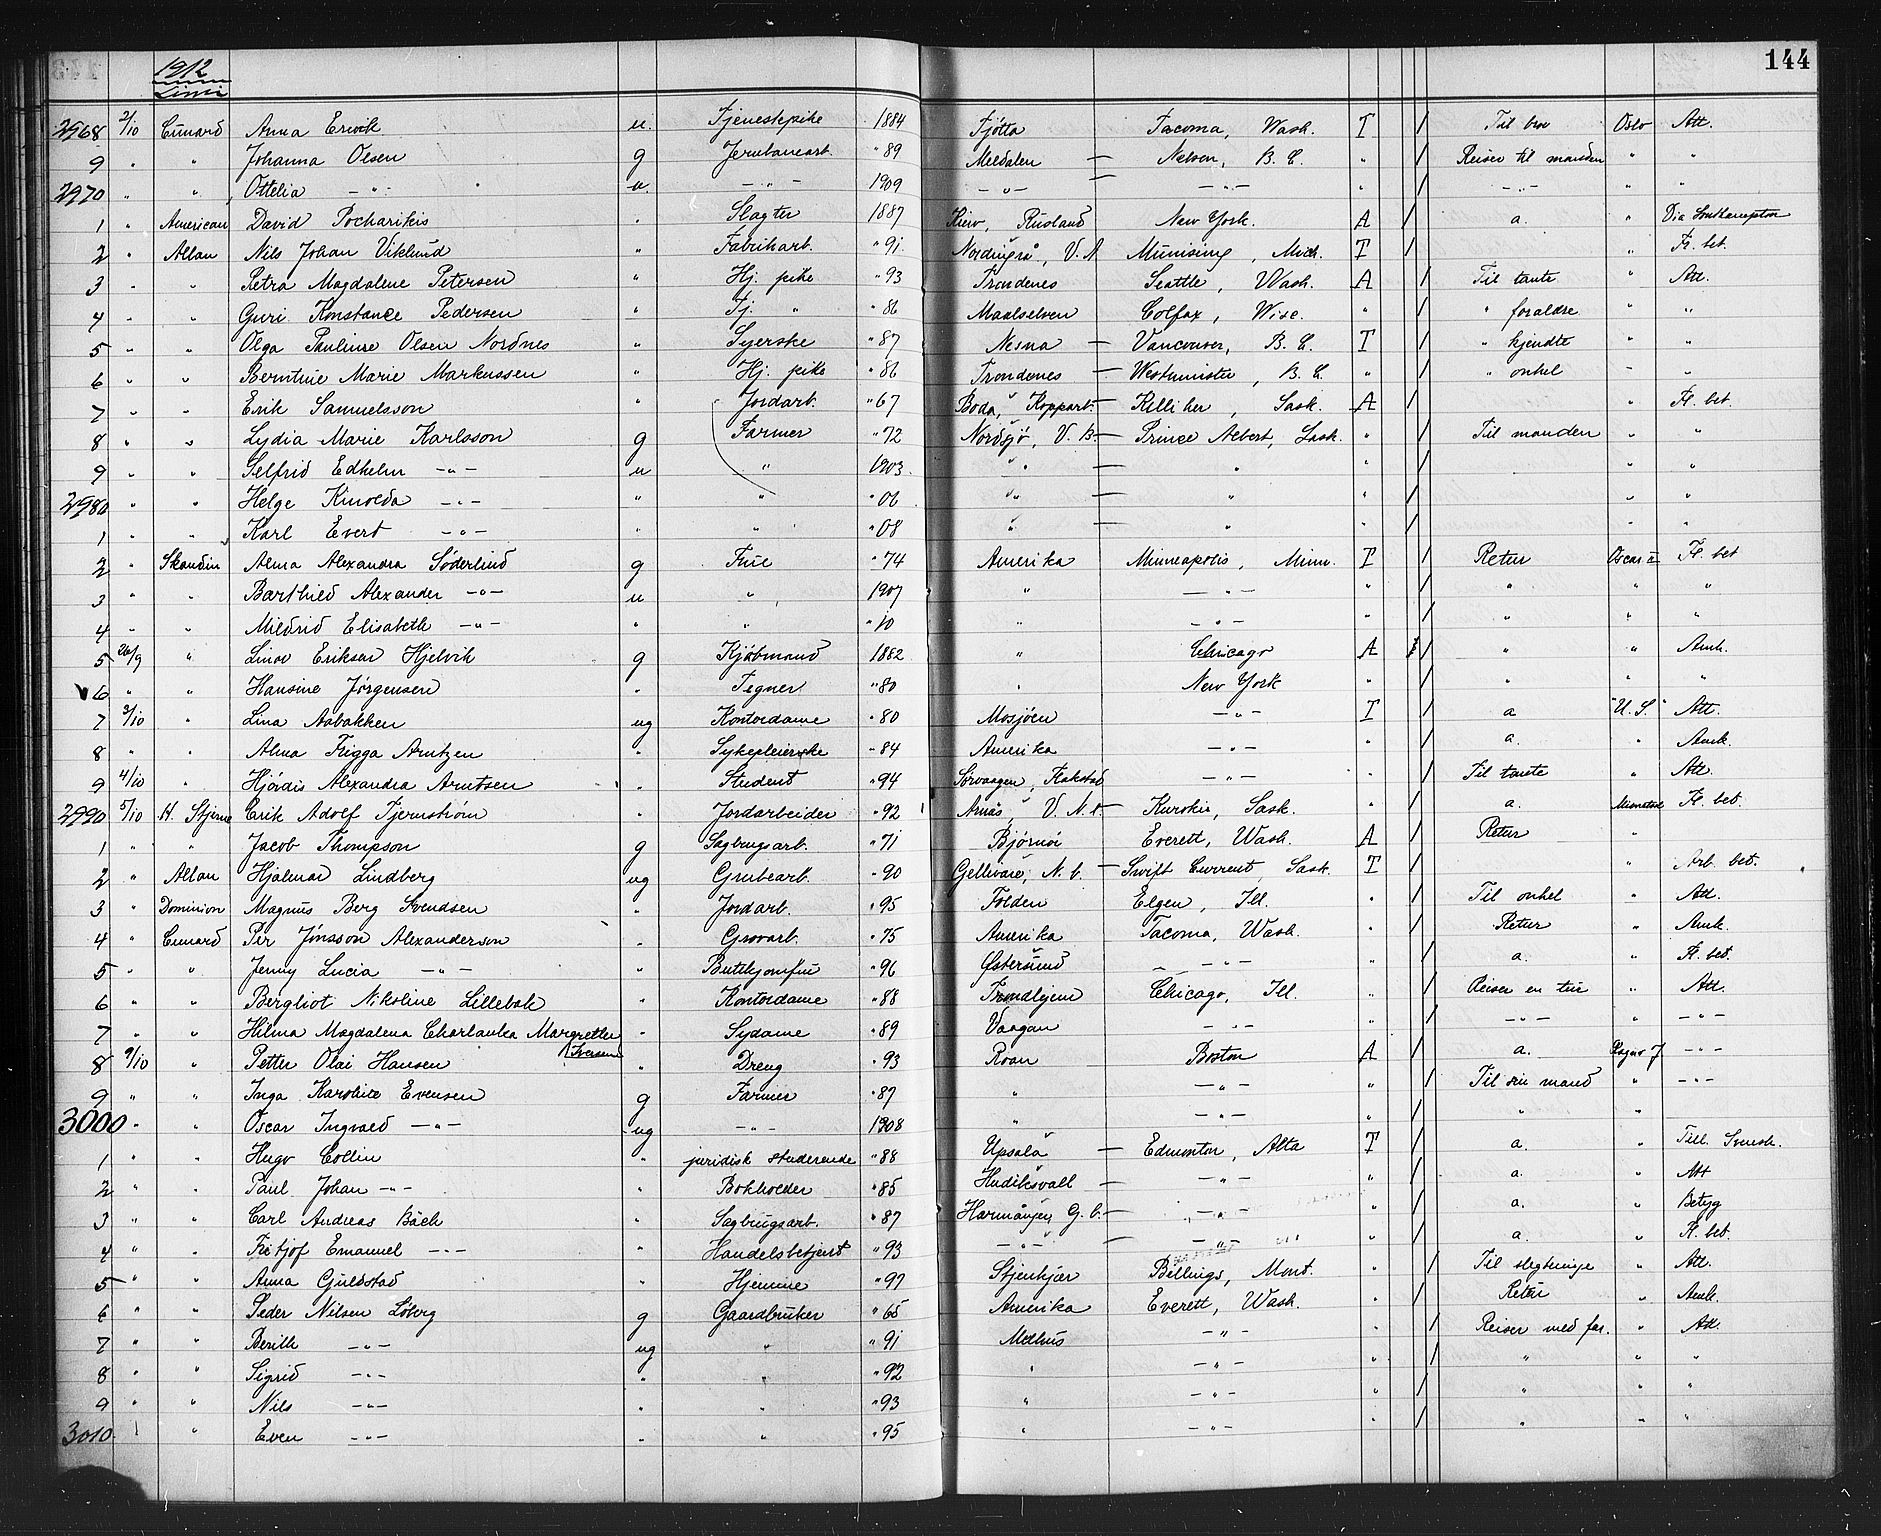 144
1912
Linii
2968 2/10 Cunard Anna Ervik u. Tjenestepike 1884 Tjötta Tacoma, Wash. T / Til bror Oslo Att.
9 " " Johanna Olsen g Jernbanearb. " 89 Meldalen — Nelson, B. C. " / Reiser til manden " "
2970 " " Ottelia —"— u. —"— 1909 —"— — —"— " / —"— " "
1 " American David Pocharikis " Slagter 1887 Kiew, Rusland New York. A / a. " Via Southampton
2 " Allan Nils Johan Viklund " Fabrikarb. " 91 Nordingrå, V. N Munising, Mich. T / " Fl. bet.
3 " " Petra Magdalene Petersen " Hj. pike " 93 Trondenes Seattle, Wash. A / Til tante " Att.
4 " " Guri Konstance Pedersen " Tj. " " 86 Maalselven Colfax, Wisc. " / " foraldre " "
5 " " Olga Pauline Olsen Nordnes " Syerske " 87 Nesna — Vancouver, B. C. T / " kjendte " "
6 " " Berntine Marie Markussen " Hj. pike " 86 Trondenes — Westminster, B. C. " / " onkel " "
7 " " Erik Samuelsson " Jordarb. " 67 Boda, Koppart. — Killiher, Sask. A / " Fl. bet.
8 " " Lydia Marie Karlsson g Farmer " 72 Nordsjö, V. B. — Prince Albert, Sask. " / Til manden " "
9 " " Selfrid Edhelm —"— u " 1903. " — " " / " "
2980 " " Helge Kinolda —"— " " " 06 " — " " / " "
1 " " Karl Evert —"— " " " 08 " — " " / " "
2 " Skandin Alma Alexandra Söderlind g Frue " 74 Amerika Minneapolis, Minn. T / Retur Oscar II Fl. bet
3 " " Barthild Alexander —"— u " 1907 " —"— " / " " "
4 " " Mildrid Elisabeth —"— " " " 10 " —"— " / " " "
5 26/9 " Linov Eriksen Hjelvik g Kjöbmand 1882. " Chicago A / " " Amk.
6 " " Hansine Jörgensen " Tegner " 80 " New York " / " " "
7 3/10 " Lina Aabakken ug Kontordame " 80 Mosjöen —"— T / a "U. S." Att.
8 " " Alma Frigga Arntzen " Sykepleierske " 84 Amerika —"— " / a. " Amk.
9 4/10 " Hjördis Alexandra Arntsen " Student " 94 Sörvaagen, Flakstad —"— " / Til tante " Att.
2990 5/10 H. Stjerne Erik Adolf Tjernström " Jordarbeider " 92 Arnäs, V. N. L — Kurokis, Sask. " / a. Fl. bet.
1 " " Jacob Thompson g Sagbrugsarb. " 71 Björnör Everett, Wash. A / Retur "
2 " Allan Hjalmar Lindberg ug Grubearb. " 90 Gellivare, N. b. — Swift Current, Sask. T / " Arb. bet.
3 " Dominion Magnus Berg Svendsen " Jordarb. " 95 Folden Elgen, Ill. " / Til onkel " Att.
4 " Cunard Per Jönsson Alexanderson " Grovarb. " 75 Amerika Tacoma, Wash. " / Retur " Amk.
5 " " Jenny Lucia —"— " Butikjomfru " 96 Östersund —"— " / a. " Fl. bet.
6 " " Bergliot Nikoline Lillebak " Kontordame " 88 Trondhjem Chicago, Ill. " / Reiser en tur " Att.
7 " " Hilma Magdalena Charlautha Margrethe Iversen " Sydame " 89 Vaagan —"— " / —"— " —"—
8 9/10 " Petter Olai Hansen " Dreng " 93 Roan Boston A / a. —"—
9 " " Inga Karoline Evensen g Farmer " 87 " —"— " / Til sin mand " —"—
3000 " " Oscar Ingvald —"— ug —"— 1908 " —"— " / " "
1 " " Hugo Collin " juridisk studerende " 88 Upsala — Edmonton, Alta T / a. " Till. Svensk.
2 " " Paul Johan —"— " Bokholder " 85 Hudiksvall — —"— " / a. " Att
3 " " Carl Andreas Bäck " Sagbrugsarb. " 87 Harmånger, G. b. — —"— " / a. " Betyg
4 " " Fritjof Emanuel —"— " Handelsbetjent " 93 —"— —"— " / a. " Fl. bet.
5 " " Anna Guldstad " Hjemme " 97 Stjenkjær Billings, Mont. " / Til slegtninge " Att.
6 " " Peder Nilsen Löberg g Gaardbruker " 65 Amerika Everett, Wash. " / Retur " Amk.
7 " " Berith —"— ug " " 91 Melhus —"— " / Reiser med far. " Att.
8 " " Sigrid —"— " " " 92 " —"— " / " " "
9 " " Nils —"— " " " 93 " —"— " / " " "
3010 " " Even —"— " " " 95 " —"— " / " " "